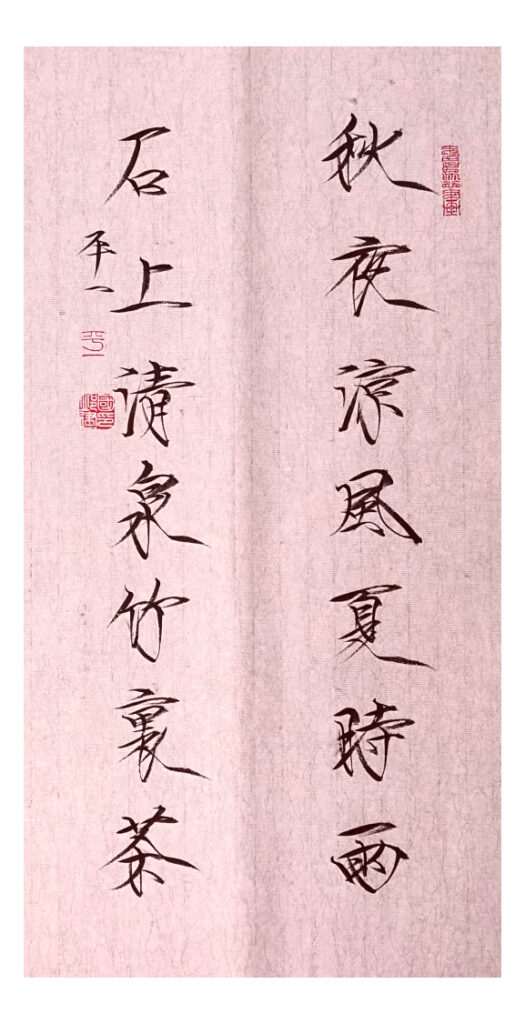 秋夜涼風夏時雨
石上清泉竹裏茶
平一
平一